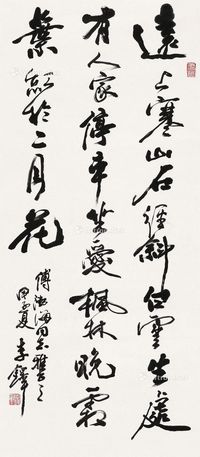 遠上寒山石径斜白雲生處
有人家停車坐愛楓林晚霜
葉紅於二月花
傅淑海同志雅正之
甲子夏 李鐸